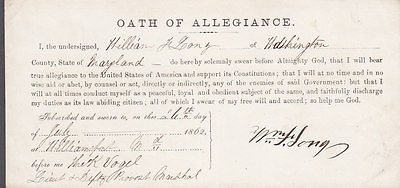 OATH OF ALLEGIANCE.
I, the undersigned, William F Long of Washington
County, State of Maryland - do hereby solemnly swear before Almighty God, that I will bear
true allegiance to the United States of America and support its Constitutions; that I will at no time and in no
wise aid or abet, by counsel or act, directly or indirectly, any of the enemies of said Government: but that I
will at all times conduct myself as a peaceful, loyal and obedient subject of the same, and faithfully discharge
my duties as its law abiding citizen; all of which I swear of my free will and accord; so help me God.
Subscribed and sworn to, on this 26th day
of July 1862,
at Williamsport
before me Vogel
Lieut & Dpty Provost Marshal
Wm F. Long